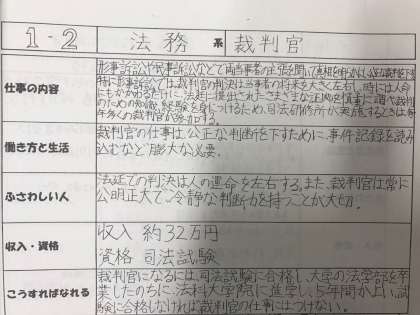 1-2 法務 系 裁判官
仕事の内容
刑事訴訟や民事訴訟などで両当事者の主張を聞いて真相を明らかにし公正な裁判を下す
特に刑事訴訟では裁判官の判決は当事者の将来を大きく左右し、時には人命
にもかかわるだけに、法廷に提出されたさまざまな証拠を慎重に調べ裁判
のための知識、経験を身につけるため、司法研修所が実施するときは毎
年多くの裁判官が参加する。
働き方と生活
裁判官の仕事は、公正な判断を下すために、事件記録を読み
込むなど膨大な必要。
ふさわしい人
法廷での判決は人の運命を左右する。また、裁判官は常に
公明正大で冷静な判断力を持つことが大切。
収入・資格
収入 約32万円
資格 司法試験
こうすればなれる
裁判官になるには、司法試験に合格し、大学の法学部を卒
業したのちに、法科大学院に進学し、5年間か上い、試
験に合格しなければ裁判官の仕事にはつけない。